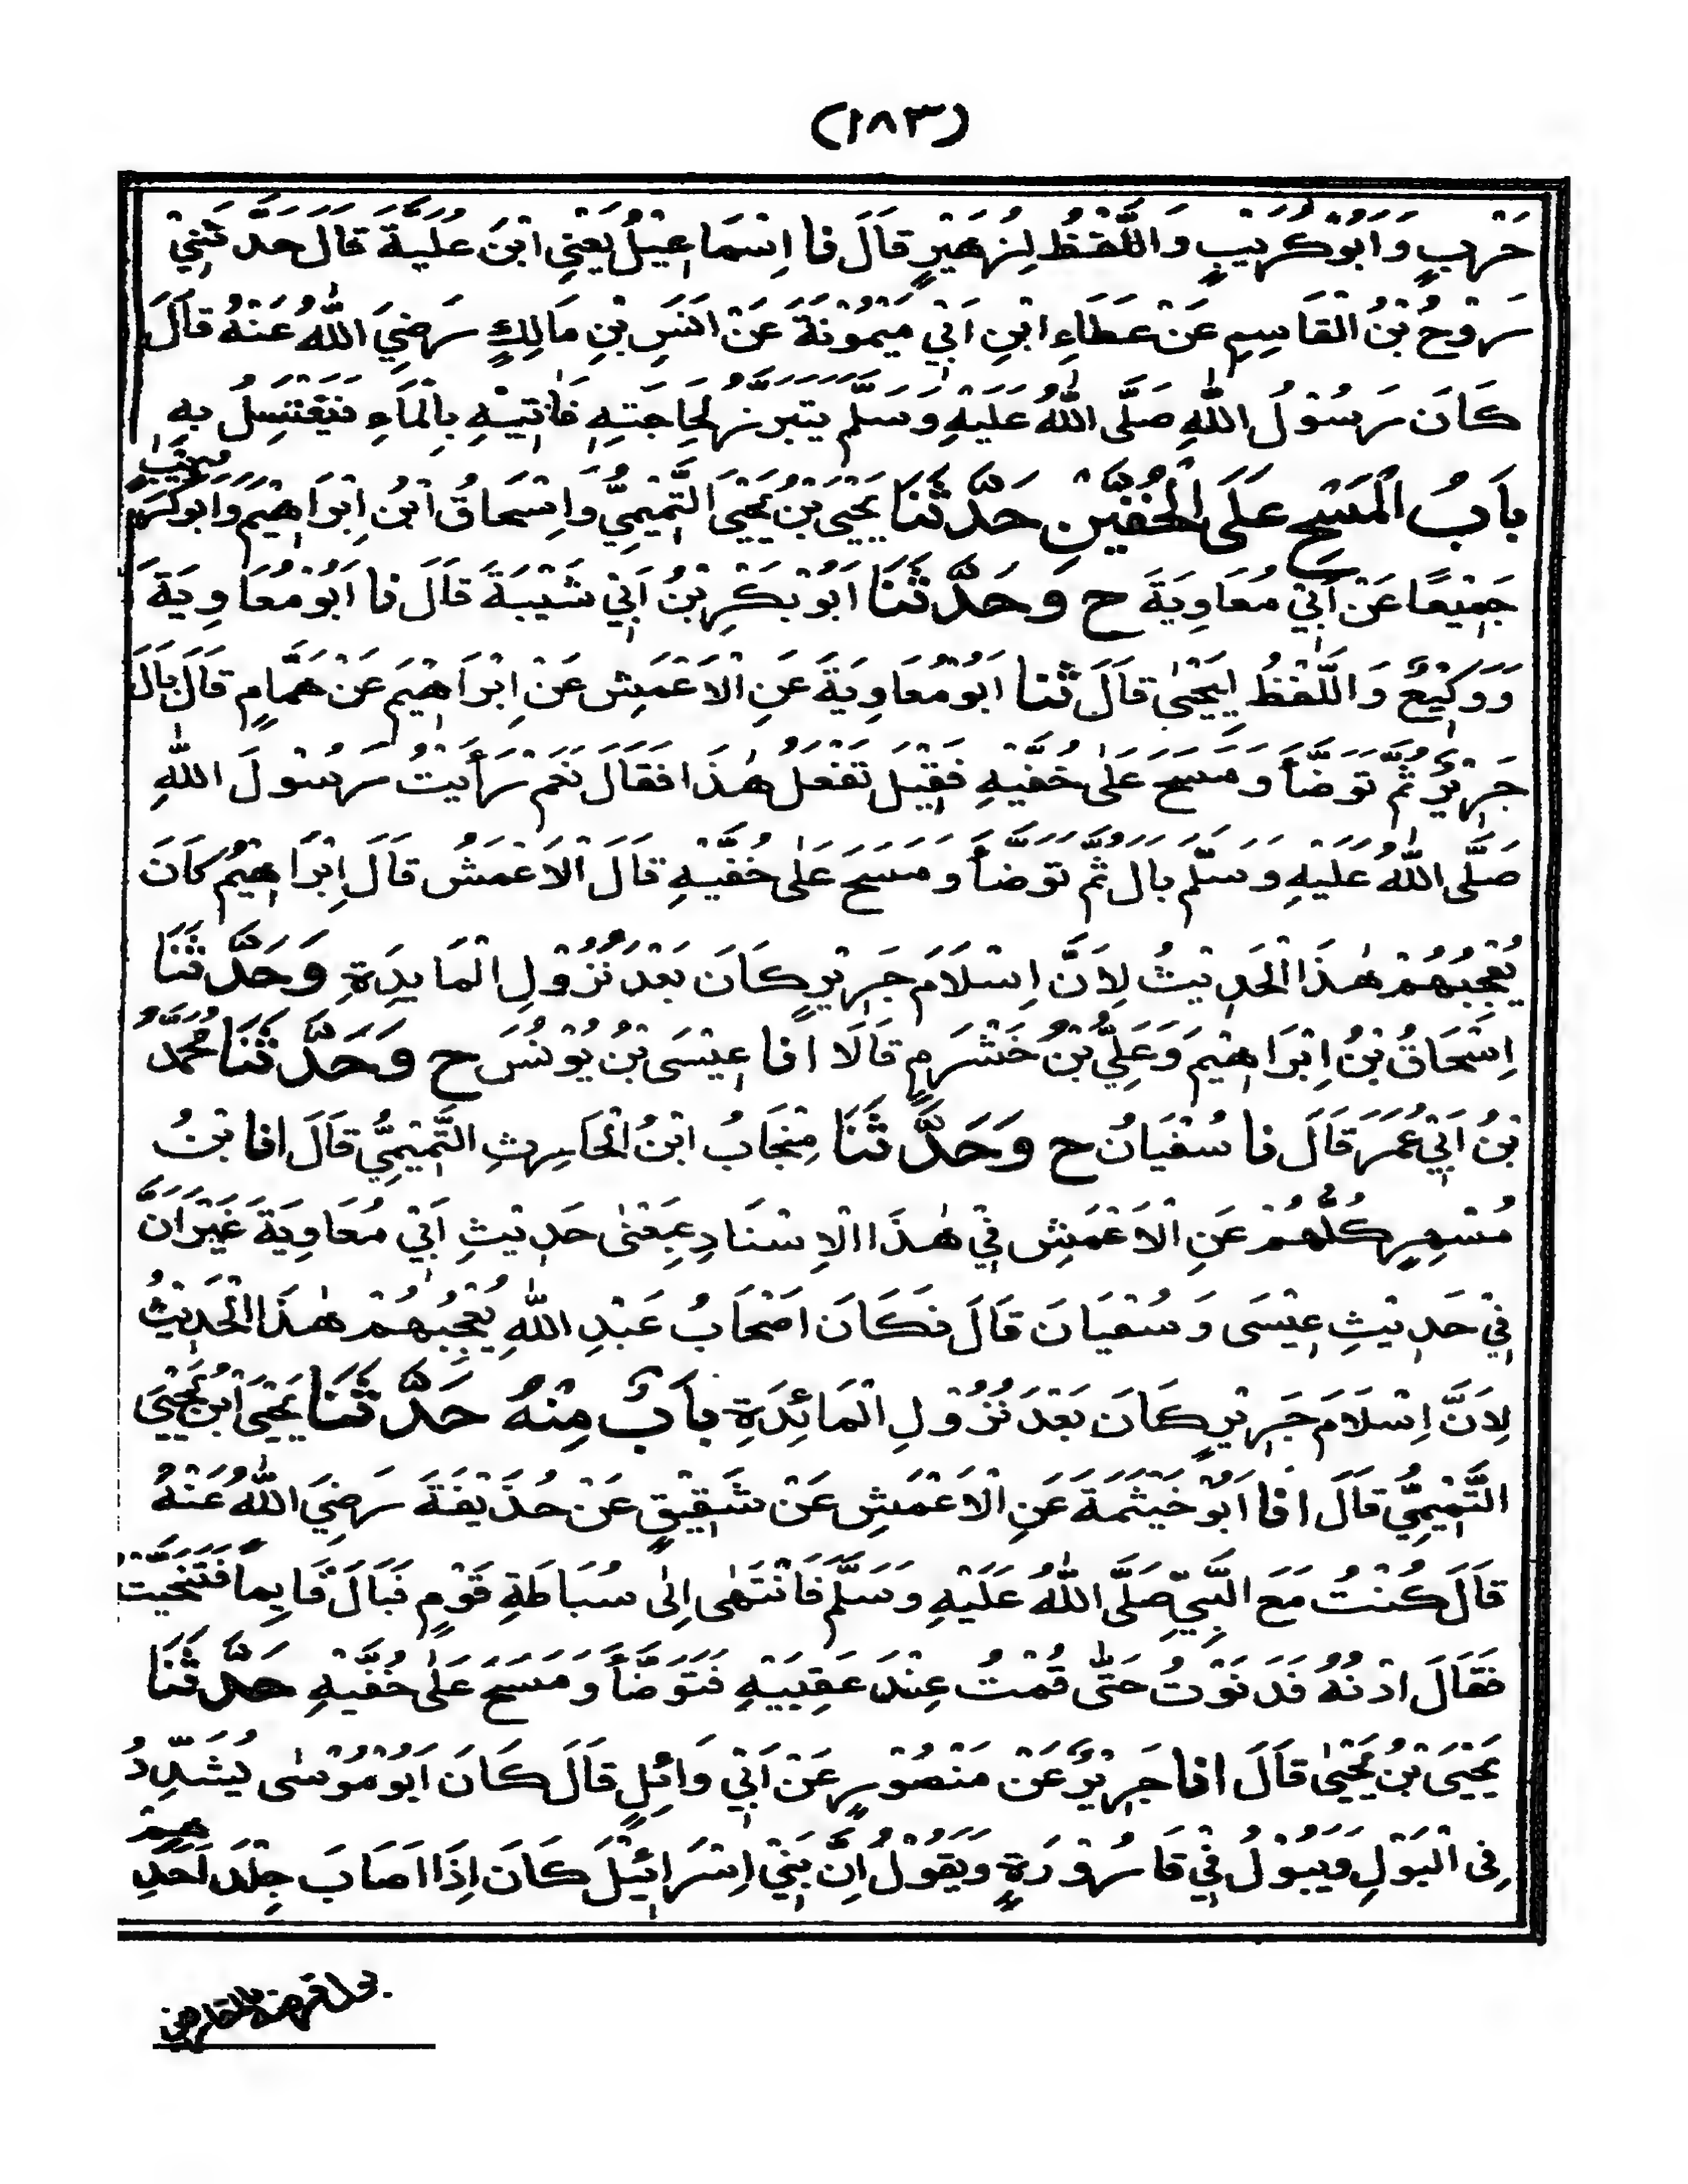 (١٨٣)
حَرْبٍ وَاَبُوْكُرَيْبٍ وَاللَّفْظُ لِزُهَيْرٍ قَالَ نا اِسْمَاعِيْلُ يَعْنِى ابْنَ عُلَيَّةَ قَالَ حَدَّثَنِيْ
رَوْحُ بْنُ الْقَاسِمِ عَنْ عَطَاءِ ابْنِ اَبِيْ مَيْمُوْنَةَ عَنْ اَنَسِ بْنِ مَالِكٍ رَضِيَ اللّٰهُ عَنْهُ قَالَ
كَانَ رَسُوْلُ اللّٰهِ صَلَّى اللّٰهُ عَلَيْهِ وَسَلَّمَ يَتَبَرَّزُ لِحَاجَتِهٖ فَاٰتِيْهِ بِالْمَاءِ فَيَغْتَسِلُ بِهٖ
بَابُ الْمَسْحِ عَلَى الْخُفَّيْنِ حَدَّثَنَا يَحْيَى بْنُ يَحْيَى التَّمِيْمِيُّ وَاِسْحَاقُ ابْنُ اِبْرَاهِيْمَ وَاَبُوْكُرَيْبٍ
جَمِيْعًا عَنْ اَبِيْ مُعَاوِيَةَ ح وَحَدَّثَنَا اَبُوْ بَكْرِ بْنُ اَبِيْ شَيْبَةَ قَالَ نا اَبُوْ مُعَاوِيَةَ
وَوَكِيْعٌ وَاللَّفْظُ لِيَحْيٰى قَالَ ثنا اَبُوْ مُعَاوِيَةَ عَنِ الْاَعْمَشِ عَنْ اِبْرَاهِيْمَ عَنْ هَمَّامٍ قَالَ بَالَ
جَرِيْرٌ ثُمَّ تَوَضَّأَ وَمَسَحَ عَلٰى خُفَّيْهِ فَقِيْلَ تَفْعَلُ هٰذَا فَقَالَ نَعَمْ رَأَيْتُ رَسُوْلَ اللّٰهِ
صَلَّى اللّٰهُ عَلَيْهِ وَسَلَّمَ بَالَ ثُمَّ تَوَضَّأَ وَمَسَحَ عَلٰى خُفَّيْهِ قَالَ الْاَعْمَشُ قَالَ اِبْرَاهِيْمُ كَانَ
يُعْجِبُهُمْ هٰذَا الْحَدِيْثُ لِاَنَّ اِسْلَامَ جَرِيْرٍ كَانَ بَعْدَ نُزُوْلِ الْمَايِدَةِ وَحَدَّثَنَا
اِسْحَاقُ بْنُ اِبْرَاهِيْمَ وَعَلِيُّ بْنُ خَشْرَمٍ قَالَا انا عِيْسَى بْنُ يُوْنُسَ ح وَحَدَّثَنَا مُحَمَّدُ
بْنُ اَبِيْ عُمَرَ قَالَ نا سُفْيَانُ ح وَحَدَّثَنَا مِنْجَابُ ابْنُ الْحَارِثِ التَّمِيْمِيُّ قَالَ انا بْنُ
مُسْهِرٍ كُلُّهُمْ عَنِ الْاَعْمَشِ فِيْ هٰذَا الْاِسْنَادِ بِمَعْنٰى حَدِيْثِ اَبِيْ مُعَاوِيَةَ غَيْرَ اَنَّ
فِيْ حَدِيْثِ عِيْسَى وَسُفْيَانَ قَالَ فَكَانَ اَصْحَابُ عَبْدِ اللّٰهِ يُعْجِبُهُمْ هٰذَا الْحَدِيْثُ
لِاَنَّ اِسْلَامَ جَرِيْرٍ كَانَ بَعْدَ نُزُوْلِ الْمَائِدَةِ بَابٌ مِنْهُ حَدَّثَنَا يَحْيَى ابْنُ يَحْيَى
التَّمِيْمِيُّ قَالَ انا اَبُوْ خَيْثَمَةَ عَنِ الْاَعْمَشِ عَنْ شَقِيْقٍ عَنْ حُذَيْفَةَ رَضِيَ اللّٰهُ عَنْهُ
قَالَ كُنْتُ مَعَ النَّبِيِّ صَلَّى اللّٰهُ عَلَيْهِ وَسَلَّمَ فَانْتَهٰى اِلٰى سُبَاطَةِ قَوْمٍ فَبَالَ قَايِمًا فَتَنَحَّيْتُ
فَقَالَ ادْنُهْ فَدَنَوْتُ حَتّٰى قُمْتُ عِنْدَ عَقِبَيْهِ فَتَوَضَّأَ وَمَسَحَ عَلٰى خُفَّيْهِ حَدَّثَنَا
يَحْيَى بْنُ يَحْيٰى قَالَ انا جَرِيْرٌ عَنْ مَنْصُوْرٍ عَنْ اَبِيْ وَائِلٍ قَالَ كَانَ اَبُوْ مُوْسٰى يُشَدِّدُ
فِى الْبَوْلِ وَيَبُوْلُ فِيْ قَارُوْرَةٍ وَيَقُوْلُ اِنَّ بَنِيْ اِسْرَائِيْلَ كَانَ اِذَا اَصَابَ جِلْدَ اَحَدِهِمْ